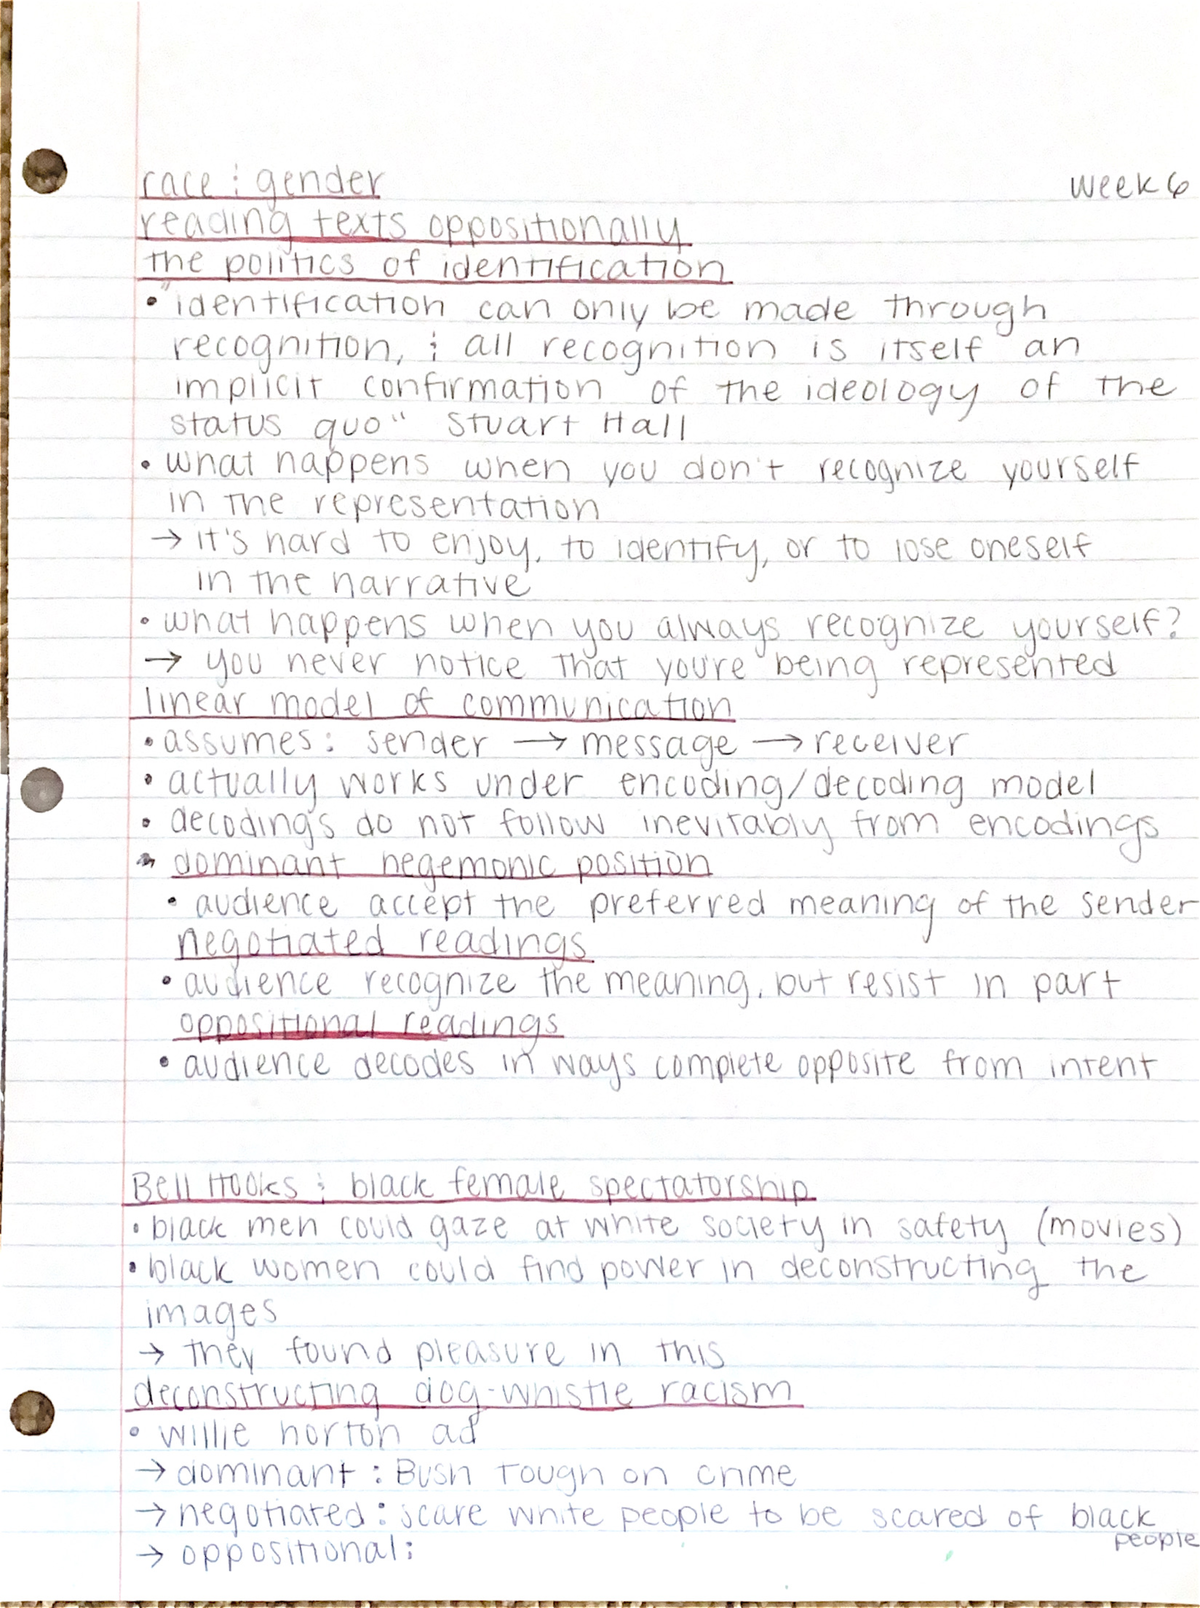 race & gender week 6
reading texts oppositionally
the politics of identification
• "identification can only be made through
recognition, & all recognition is itself an
implicit confirmation of the ideology of the
status quo" Stuart Hall
• what happens when you don't recognize yourself
in the representation
→ it's hard to enjoy, to identify, or to lose oneself
in the narrative
• what happens when you always recognize yourself?
→ you never notice that you're being represented
linear model of communication
• assumes: sender → message → receiver
• actually works under encoding/decoding model
• decodings do not follow inevitably from encodings
dominant hegemonic position
• audience accept the preferred meaning of the sender
negotiated readings
• audience recognize the meaning, but resist in part
oppositional readings
• audience decodes in ways complete opposite from intent
Bell Hooks & black female spectatorship
• black men could gaze at white society in safety (movies)
• black women could find power in deconstructing the
images
→ they found pleasure in this
deconstructing dog-whistle racism
• willie horton ad
→ dominant: Bush tough on crime
→ negotiated: scare white people to be scared of black
people
→ oppositional: